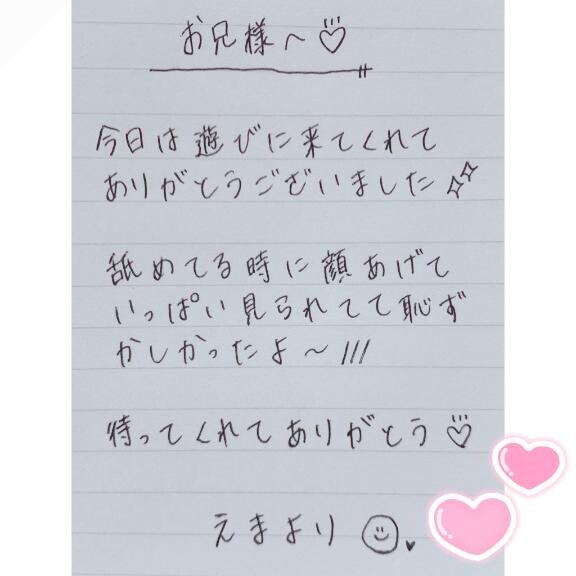 お兄様へ♡
今日は遊びに来てくれて
ありがとうございました
舐めてる時に顔あげて
いっぱい見られてて恥ず
かしかったよ〜///
待ってくれてありがとう♡
えまより